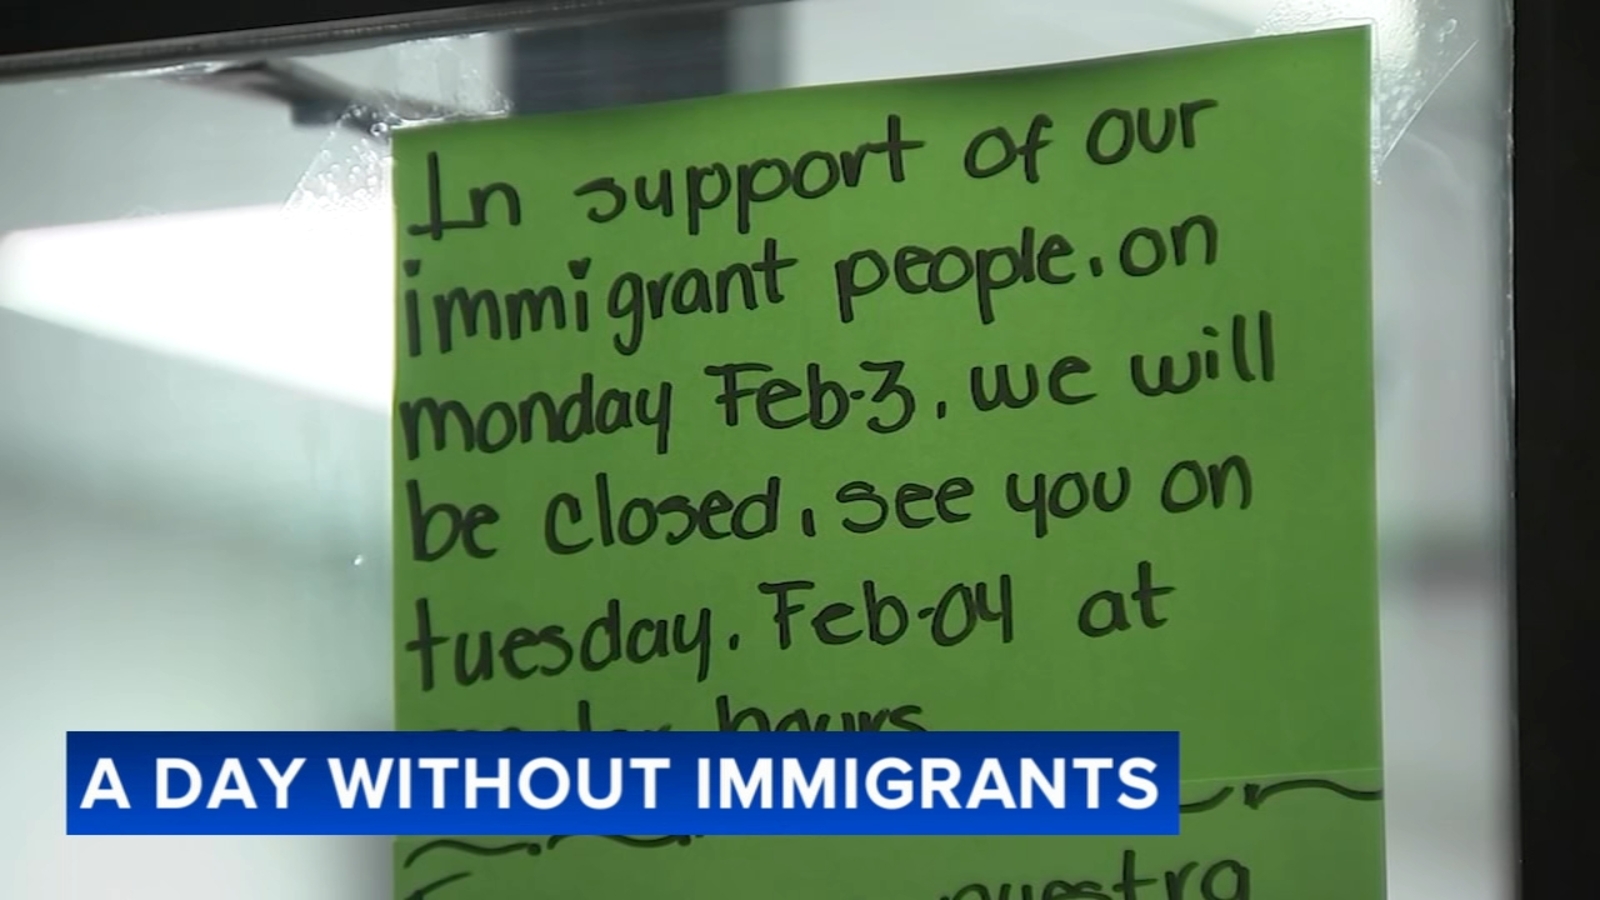 In support of our
immigrant people. on
monday Feb-3. we will
be closed, see you on
tuesday. Feb-04 at
hours
A DAY WITHOUT IMMIGRANTS
nuestra